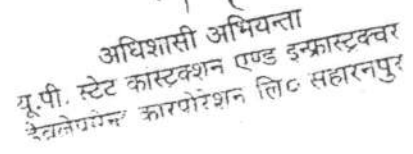 अधिशासी अभियन्ता
यू.पी. स्टेट कास्टक्शन एण्ड इन्फ्रास्ट्रक्चर
डेवलेपमेन्ट कारपोरेशन लि० सहारनपुर